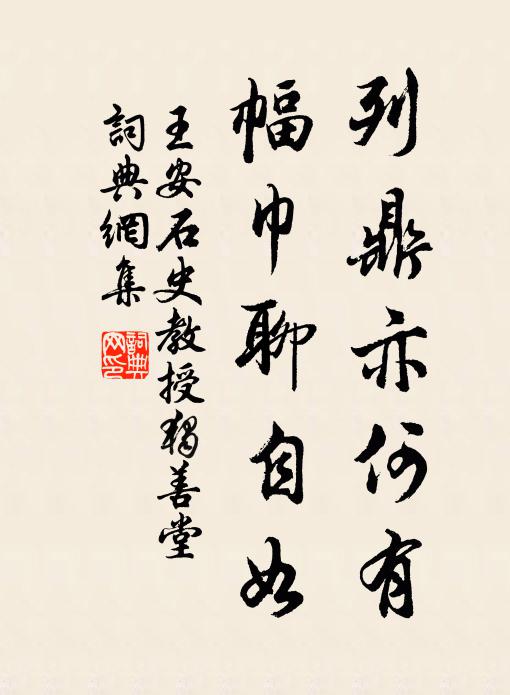 列鼎亦何有
幅巾聊自如
王安石史教授獨善堂
詞典網集
詞典网印